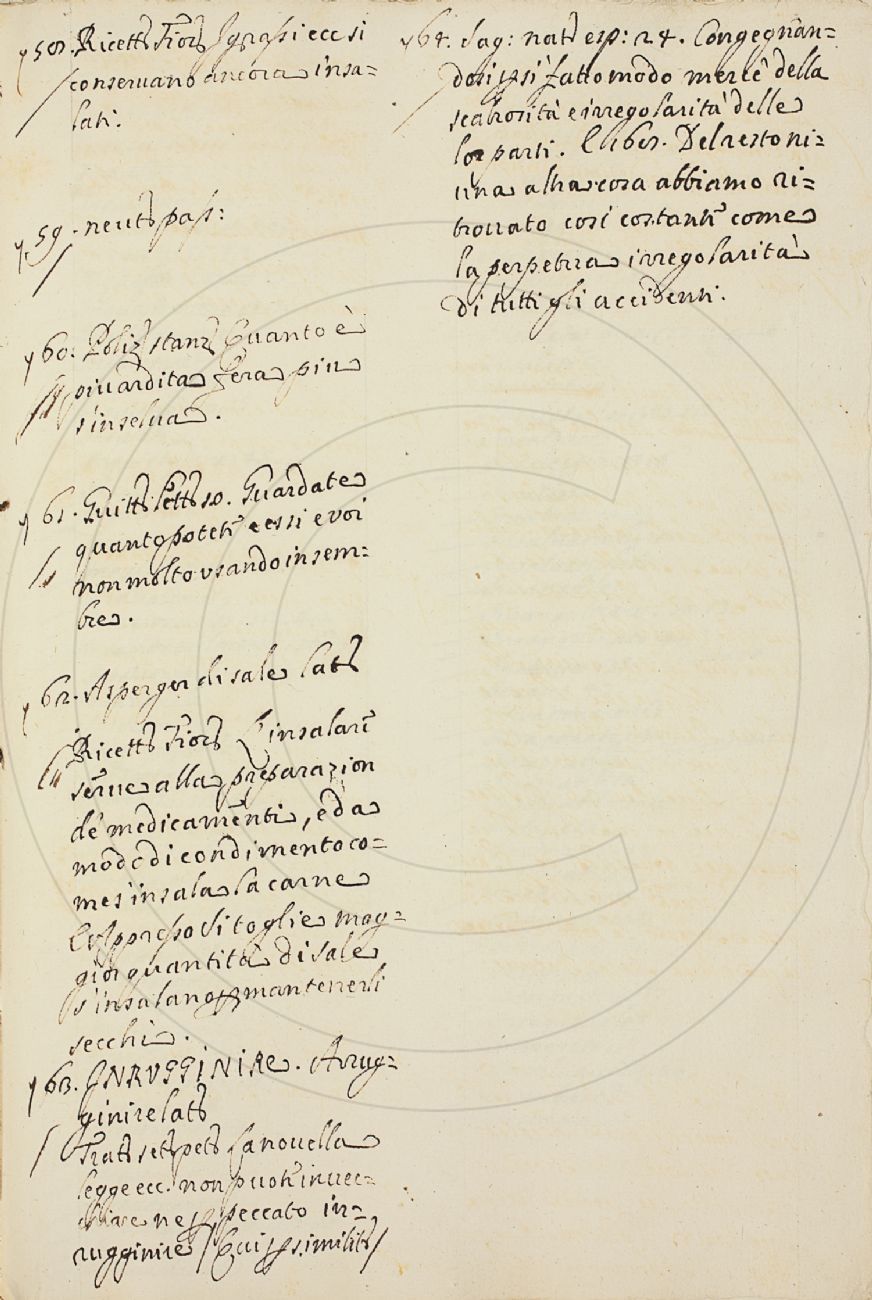 58. Ricett. Fior. I grassi ecc. si
conservano ancora insa=
lati.
59. neutr. pass:
60. Poliz. stanz. Quanto è
piu ardita fera piu
s'inselva.
61. Guitt. Lett. 10. Guardate
quanto potete e essi e voi
non molto usando insem=
bre.
62. Asperger di sale lat.
Ricett. Fior. L'insalare
serve alla preparazion
de' medicamenti, ed a
modo di condimento co=
me s'insala la carne
E appresso Si toglie mag=
gior quantità di sale
s'insalano per mantenerli
secchi.
63. INRUGGINIRE. Arrug=
ginire lat.
Tratt. sett. pett. La novella
legge ecc. non puote invec=
chiare ne per peccato in=
rugginire / Qui per similit. /
64. Sag: nat. esp: 24. Congegnan=
dosi per sì fatto modo mercè della
scabrosità e irregolarità delle
lor parti. E 168. Del resto ni=
una altra cosa abbiamo ri=
trovato così costante come
la perpetua irregolarità
di tutti gli accidenti.